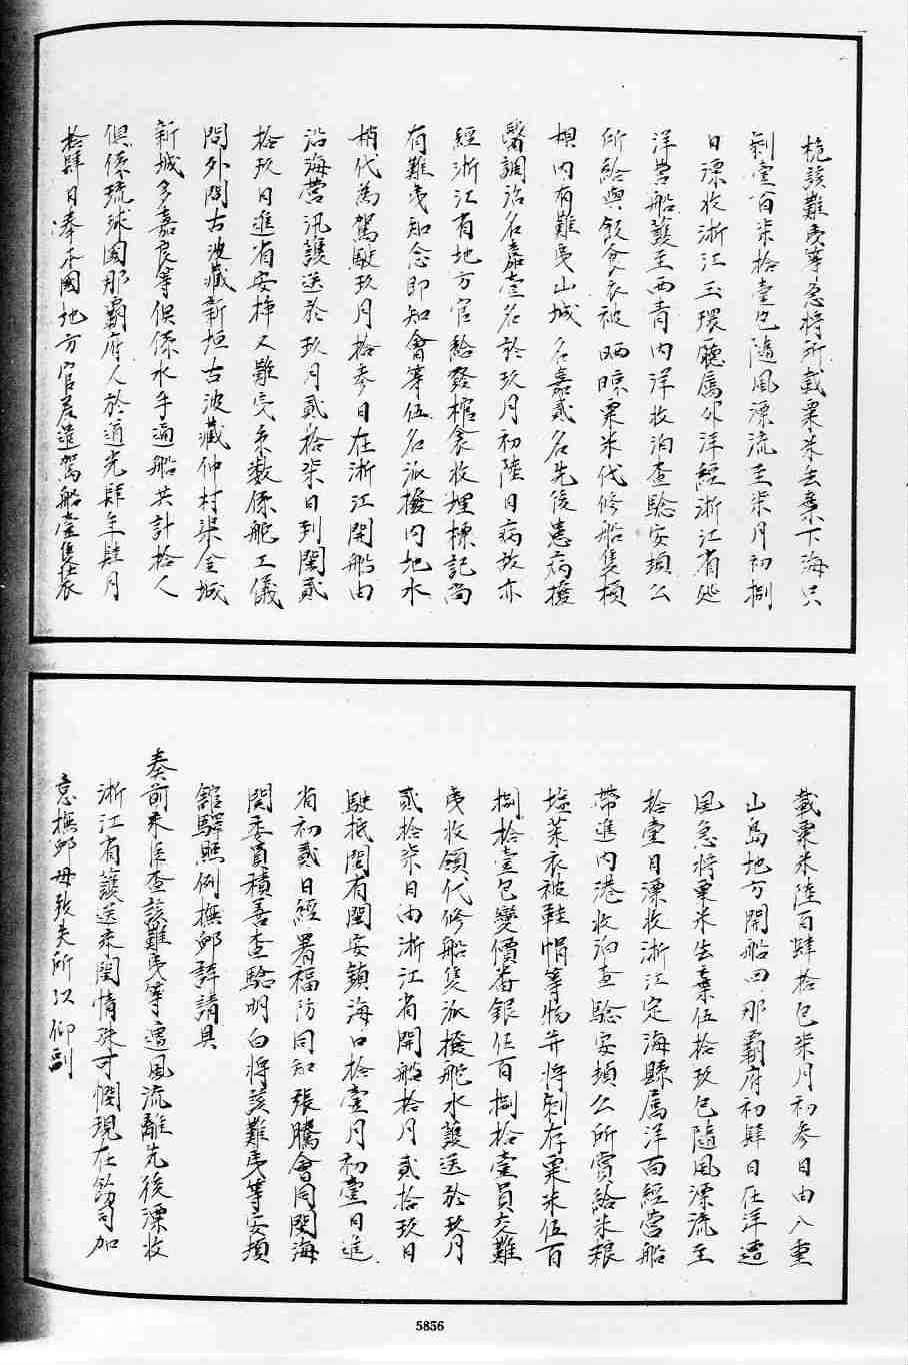 桅該難夷等急將所載粟米丟棄下海只
剩壹百柒拾壹包隨風漂流至柒月初捌
日漂收浙江玉環廳屬外洋經浙江省處
洋營船護至西青內洋收泊查驗安頓公
所給與飯食衣被晒晾粟米代修船隻槓
椇內有難夷山城名嘉貳名先後患病撥
醫調治名嘉壹名於玖月初陸日病故亦
經浙江省地方官給發棺衾收埋標記尚
有難夷知念即知會等伍名派撥內地水
梢代為駕駛玖月拾參日在浙江開船由
沿海營汛護送於玖月貳拾柒日到閩貳
拾玖日進省安插又難夷糸数係舵工儀
間外間古波藏新垣古波藏仲村渠金城
新城多嘉良等俱係水手通船共計拾人
俱係琉球國那霸府人於道光肆年肆月
拾肆日奉本國地方官差遣駕船壹隻裝
載粟米陸百肆拾包柒月初參日由八重
山島地方開船回那霸府初肆日在洋遭
風急將粟米丟棄伍拾玖包隨風漂流至
拾壹日漂收浙江定海縣屬洋面經營船
帶進內港收泊查驗安頓公所賞給米糧
塩菜衣被鞋帽等物并將剩存粟米伍百
捌拾壹包變價番銀伍百捌拾壹員交難
夷收領代修船隻派撥舵水護送於玖月
貳拾柒日由浙江省開船拾月貳拾玖日
駛抵閩省閩安鎮海口拾壹月初壹日進
省初貳日經署福防同知張騰會同閩海
関委員積善查驗明白將該難夷等安頓
館驛照例撫卹詳請具
奏前來臣查該難夷等遭風流離先後漂收
浙江省護送來閩情殊可憫現在飭司加
意撫卹毋致失所以仰副
5856